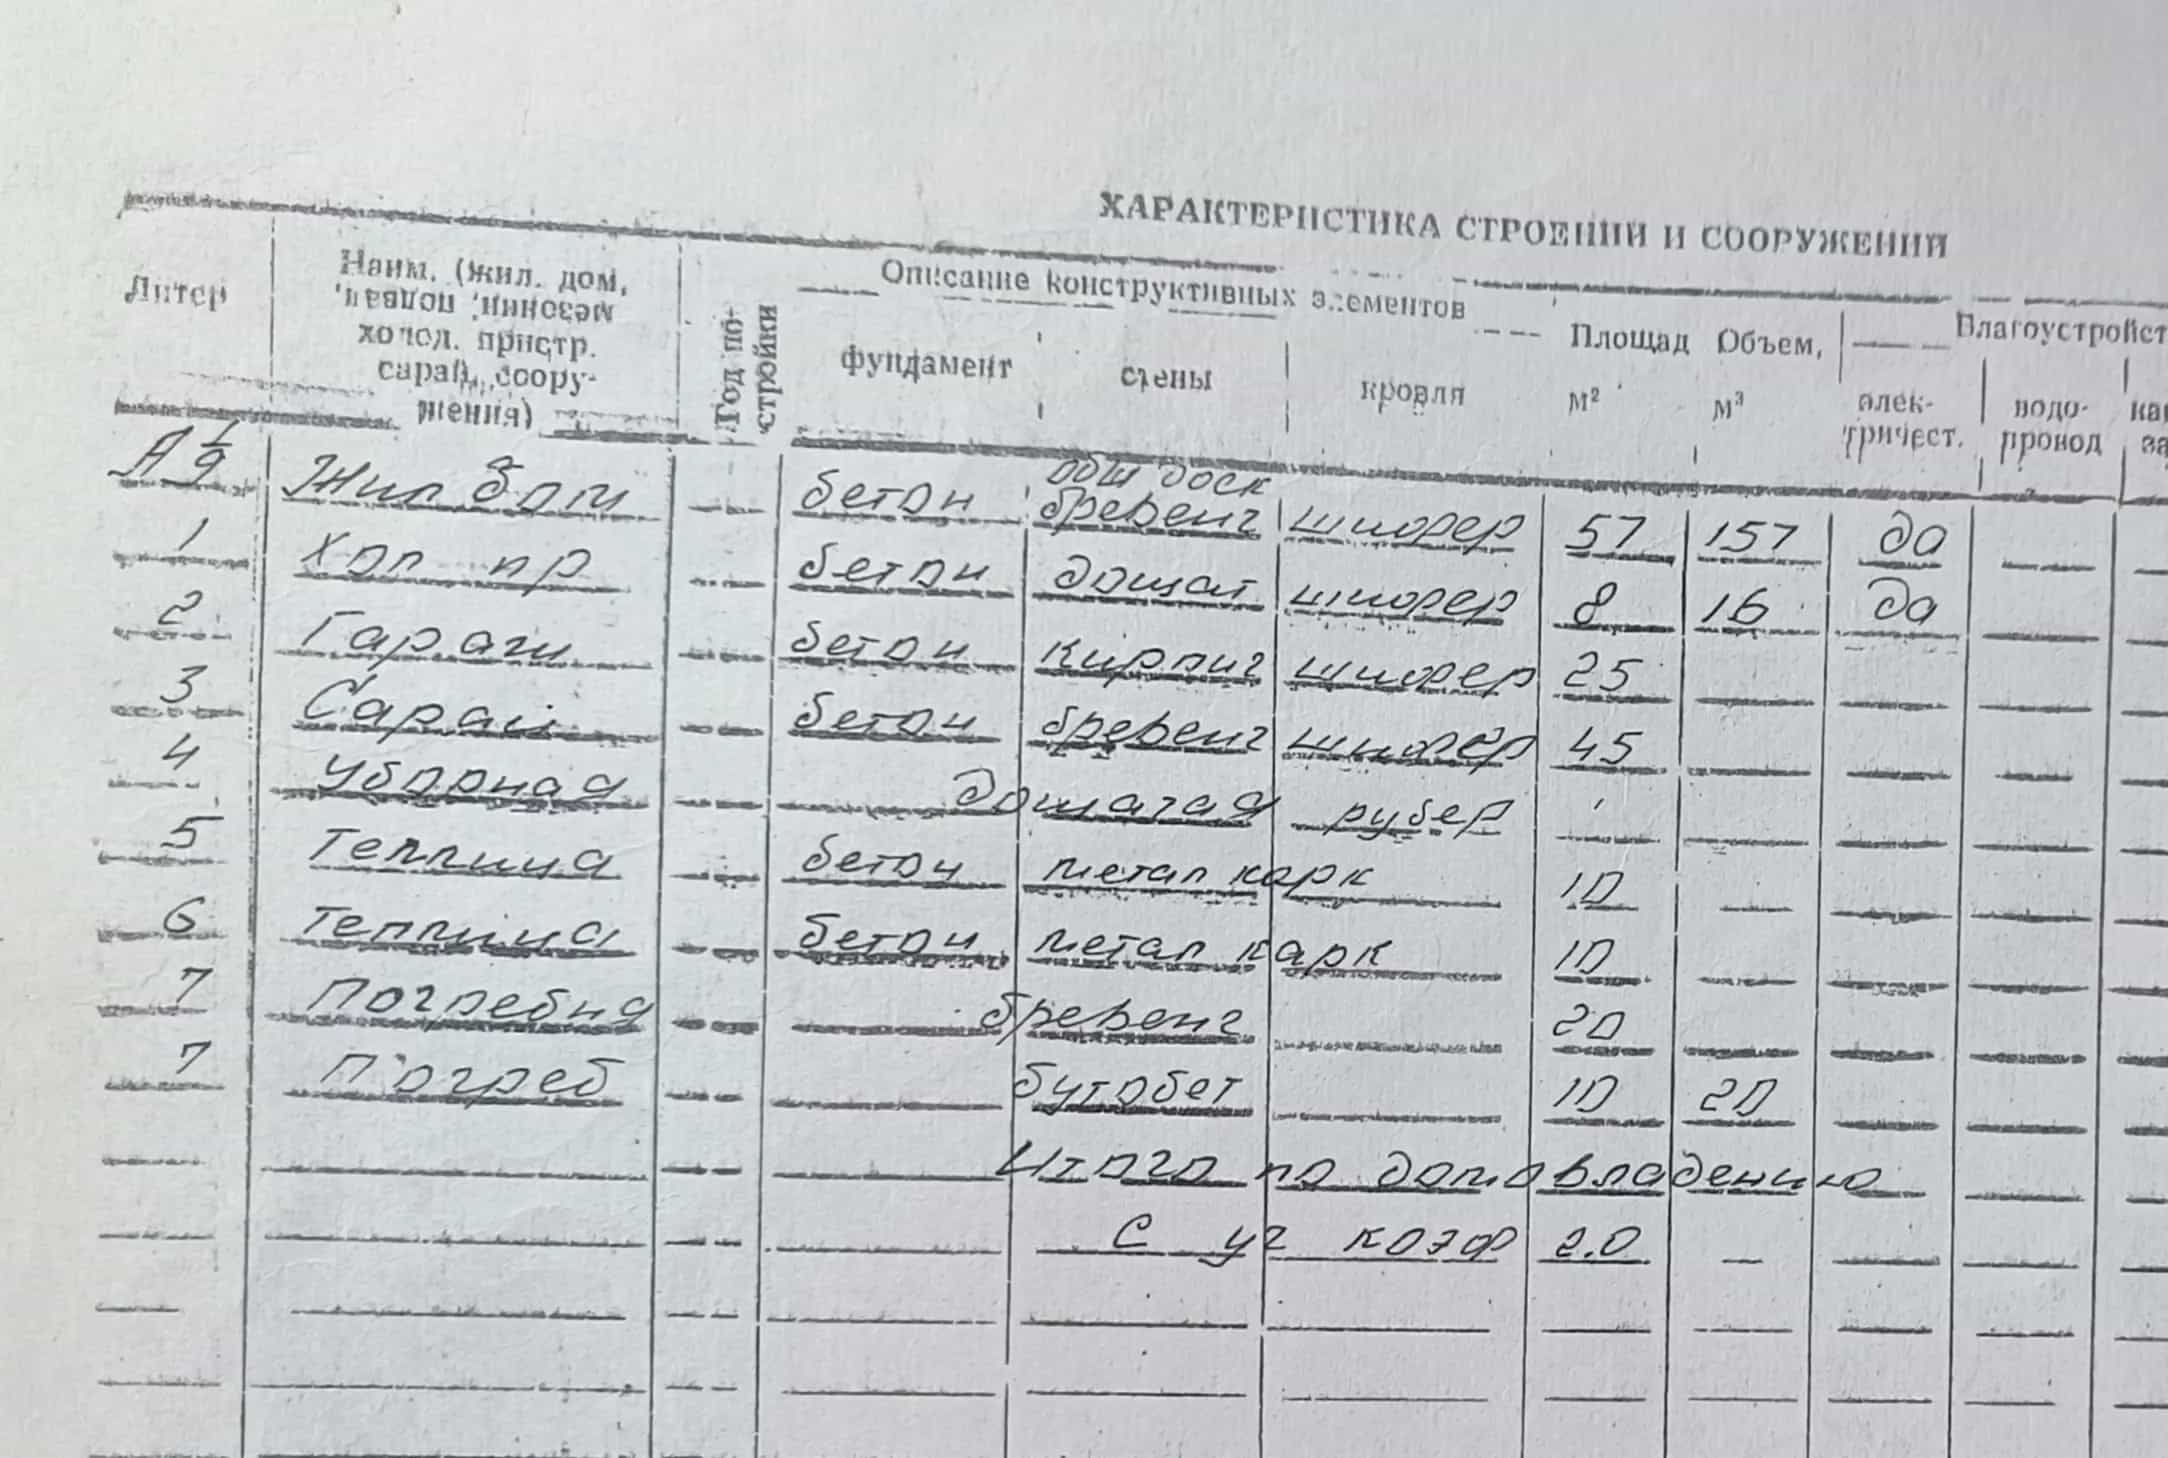 ХАРАКТЕРИСТИКА СТРОЕНИЙ И СООРУЖЕНИЙ
Литер
Наим. (жил. дом,
мезонин, подвал,
холод. пристр.
сарай, соору-
жения)
Год по-
стройки
Описание конструктивных элементов
фундамент
стены
кровля
Площад
м²
Объем,
м³
Благоустройст
элек-
тричест.
водо-
провод
А 1/9 Жил дом — бетон обш доск бревенч шифер 57 157 да
1 Хол пр бетон дощат шифер 8 16 да
2 Гараж бетон кирпич шифер 25
3 Сарай бетон бревенч шифер 45
4 Уборная дощатая рубер
5 Теплица бетон метал карк 10
6 Теплица бетон метал карк 10
7 Погребня бревенч 20
7 Погреб бутобет 10 20
Итого по домовладению
С уч коэф 2.0